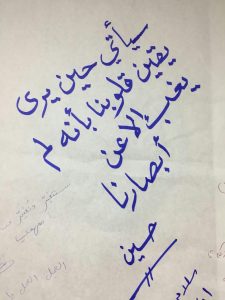 سيأتي حين يرى
يقين قلوبنا بأنه لم
يغب إلا عن
أبصارنا
حسين